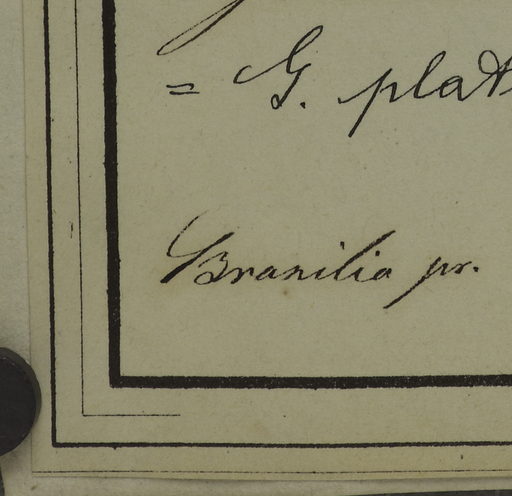 = G. plat
Brasilia pr.